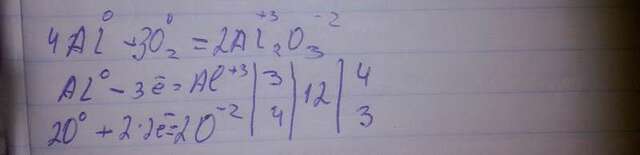 4Al⁰ + 3O₂⁰ = 2Al₂⁺³O₃⁻²
Al⁰ - 3ē = Al⁺³ | 3 | 12 | 4
2O⁰ + 2·2ē = 2O⁻² | 4 | | 3